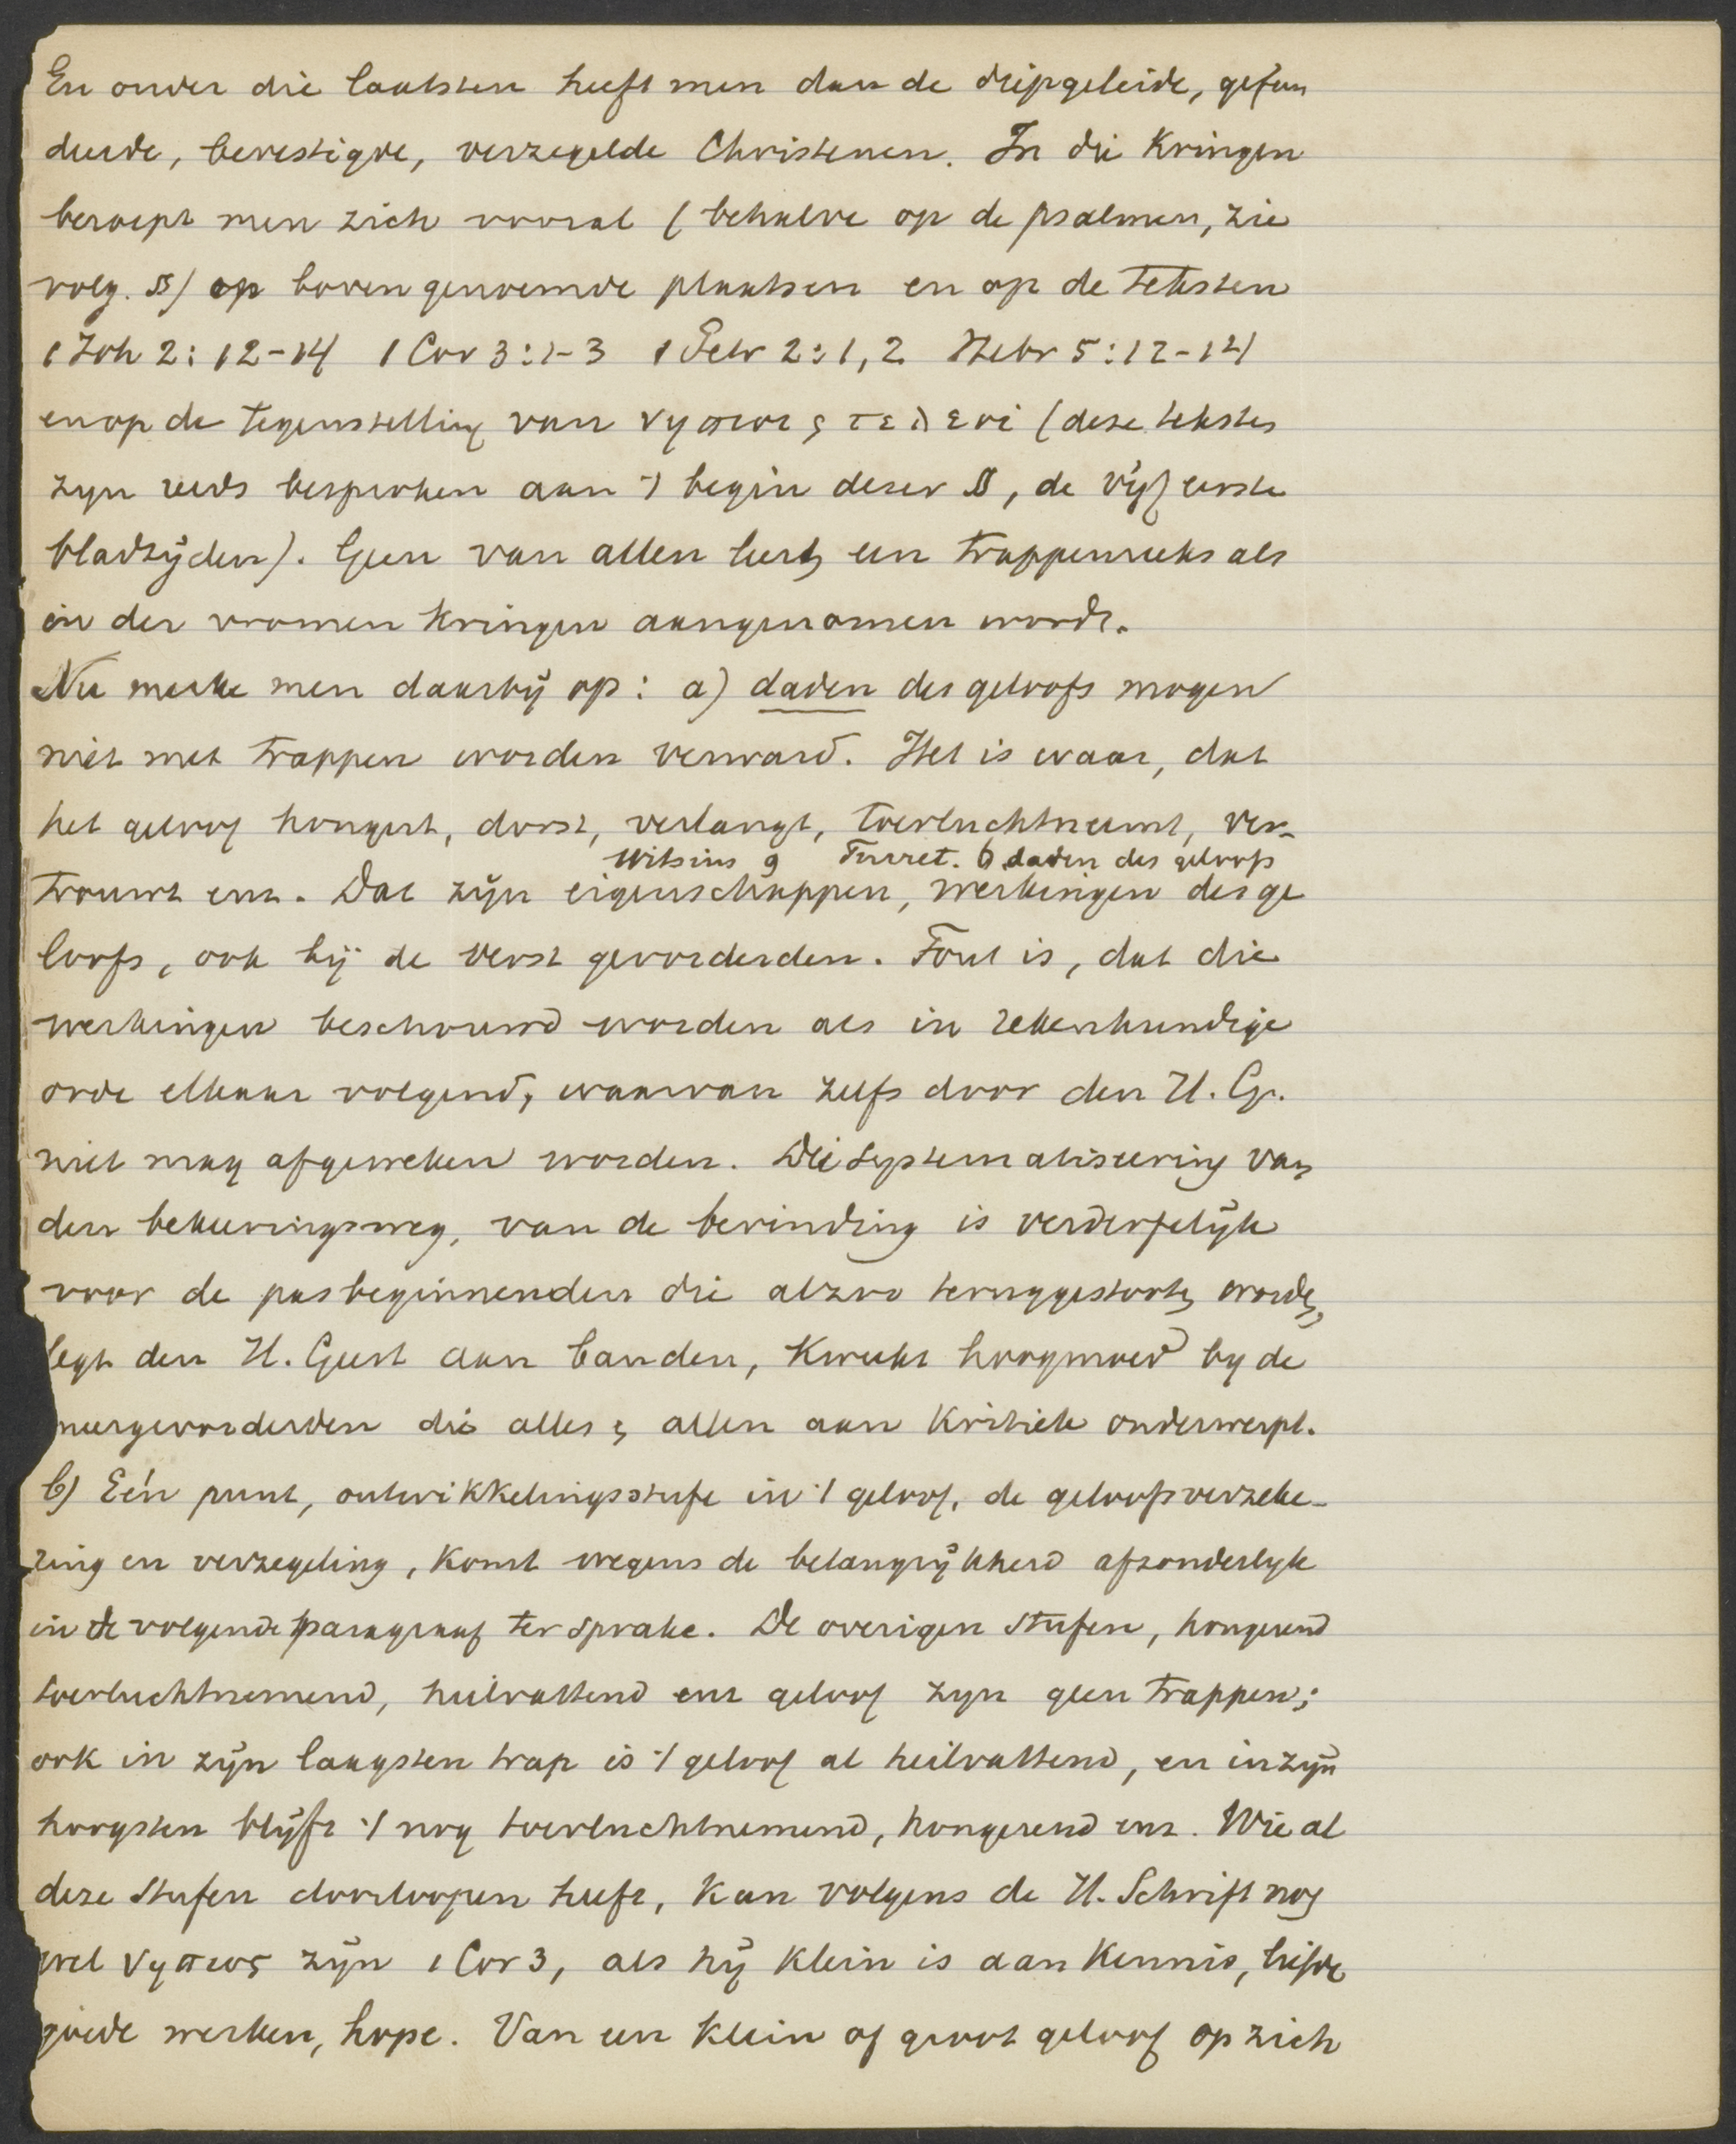 En onder die laatsten heeft men dan de diepgeleide, gefun
deerde, bevestigde, verzegelde Christenen. In die Kringen
beroept men zich vooral (behalve op de psalmen, zie
volg. §) op bovengenoemde plaatsen en op de teksten
1 Joh 2: 12-14 1 Cor 3:1-3 1 Petr 2:1,2 Hebr 5:12-14
en op de tegenstelling van νηπιοι ς τελειοι (deze teksten
zyn reeds besproken aan 't begin dezer §, de vijf eerste
bladzijden). Geen van allen leert een trappenreeks als
in den vromen Kringen aangenomen wordt.
Nu merke men daarbij op: a) daden des geloofs mogen
niet met trappen worden verward. Het is waar, dat
het geloof hongert, dorst, verlangt, toevluchtneemt, ver-
Witsius 9 Turret. 6 daden des geloofs
trouwt enz. Dat zijn eigenschappen, werkingen des ge
loofs, ook bij de verst gevorderden. Fout is, dat die
werkingen beschouwd worden als in rekenkundige
orde elkaar volgend, waarvan zelfs door den H. G.
niet mag afgeweken worden. Die systematiseering van
den bekeeringsweg, van de bevinding is verderfelijk
voor de pasbeginnenden die alzoo teruggestooten worden,
legt den H. Geest aan banden, Kweekt hoogmoed by de
meergevorderden die alles ς allen aan Kritiek onderwerpt.
b) Eén punt, ontwikkelingsstufe in 't geloof, de geloofsverzeke-
ring en verzegeling, Komt wegens de belangrijkheid afzonderlyk
in de volgende paragraaf ter sprake. De overigen stufen, hongerend
toevluchtnemend, heilvattend enz geloof zyn geen trappen;
ook in zijn laagsten trap is 't geloof al heilvattend, en in zijn
hoogsten blijft 't nog toevluchtnemend, hongerend enz. Wie al
deze stufen doorloopen heeft, Kan volgens de H. Schrift nog
wel νηπιος zijn 1 Cor 3, als hij Klein is aan Kennis, liefde
goede werken, hope. Van een Klein of groot geloof op zich